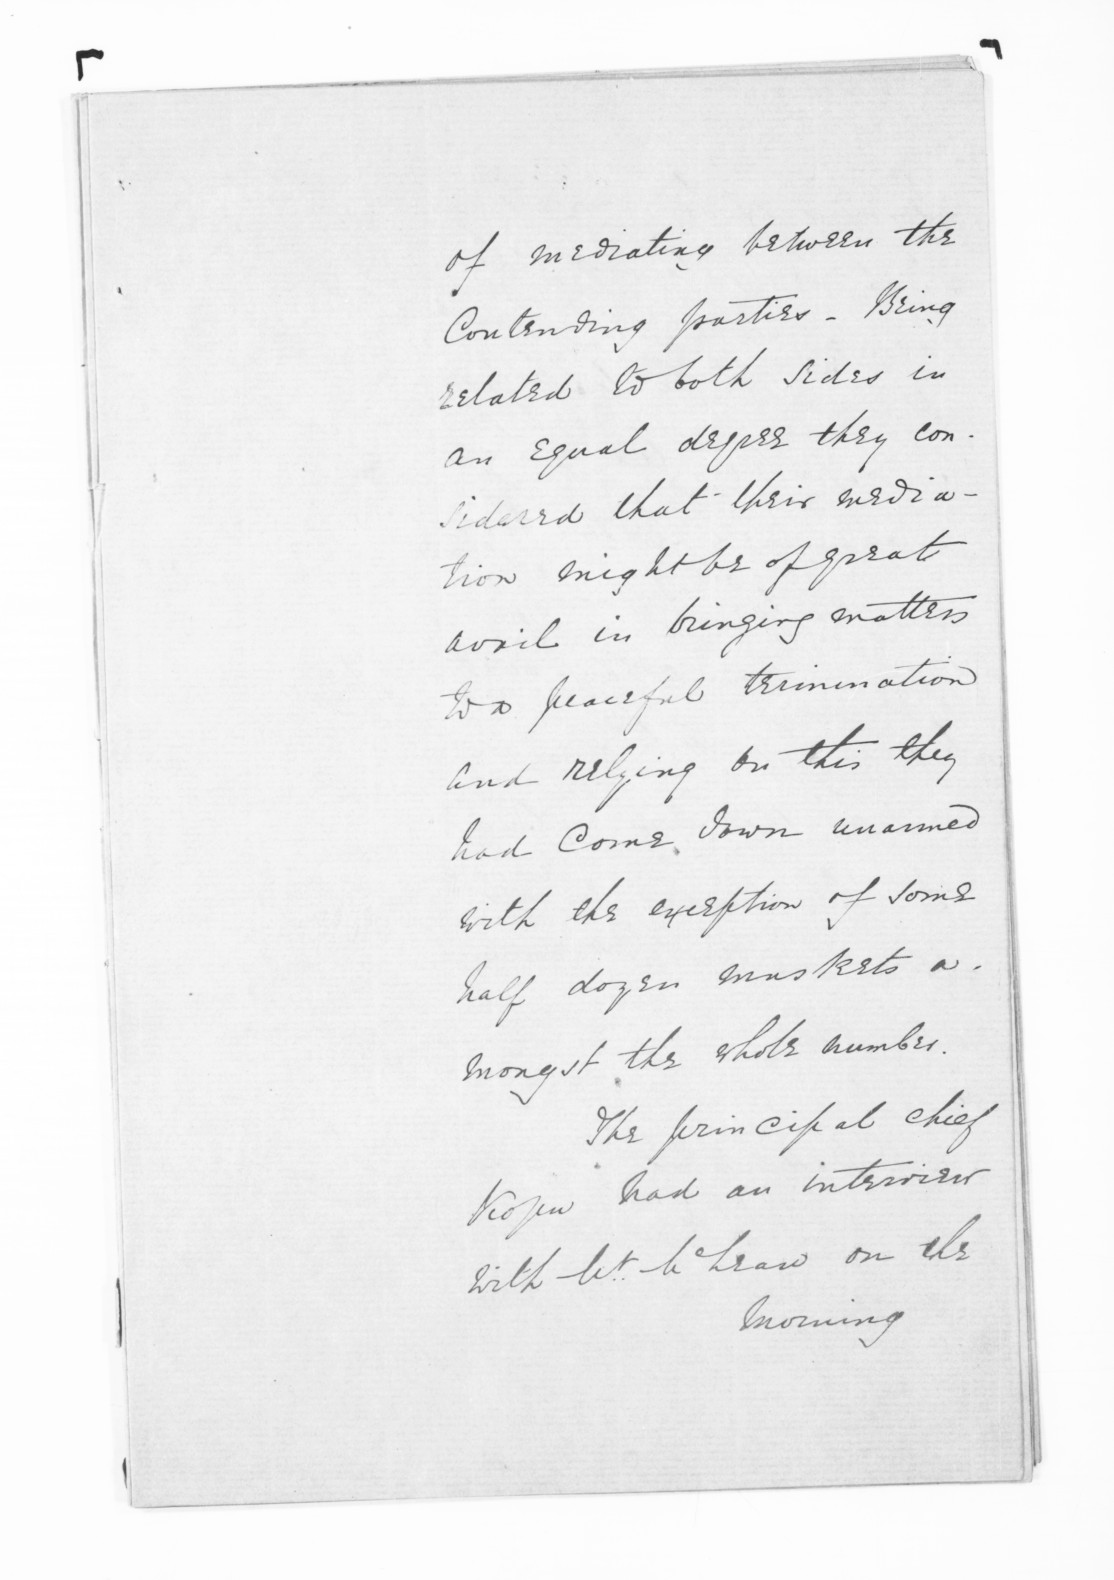 of mediating between the
Contending parties - Being
related to both sides in
an equal degree they con-
sidered that their media-
tion might be of great
avail in bringing matters
to a peaceful termination
and relying on this they
had Come down unarmed
with the exception of some
half dozen muskets a-
mongst the whole number.
The principal chief
Kopu had an interview
with Mr. McLean on the
morning